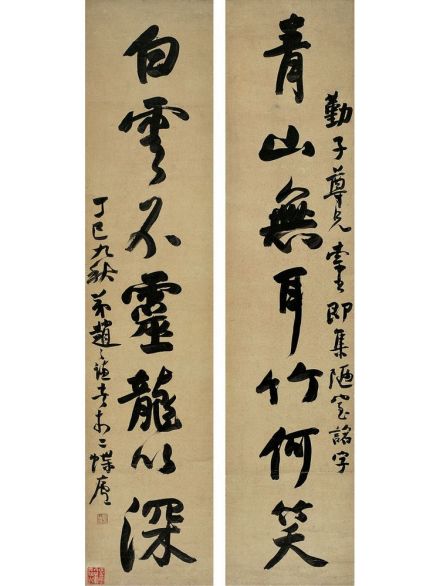 勤子尊兄即集陋室銘字
青山無耳竹何笑
白雲不靈龍以深
丁巳九秋弟趙之謙書於二蝶廬